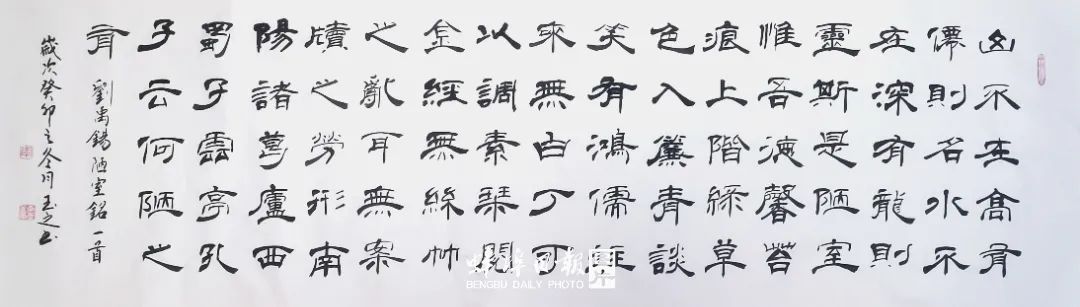 山不在高有
僊則名水不
在深有龍則
靈斯是陋室
惟吾德馨苔
痕上階綠草
色入簾青談
笑有鴻儒往
來無白丁可
以調素琴閱
金經無絲竹
之亂耳無案
牘之勞形南
陽諸葛廬西
蜀子雲亭孔
子云何陋之
有 劉禹錫陋室銘一首
歲次癸卯之冬月玉之書
蚌埠日報
BENGBU DAILY PHOTO